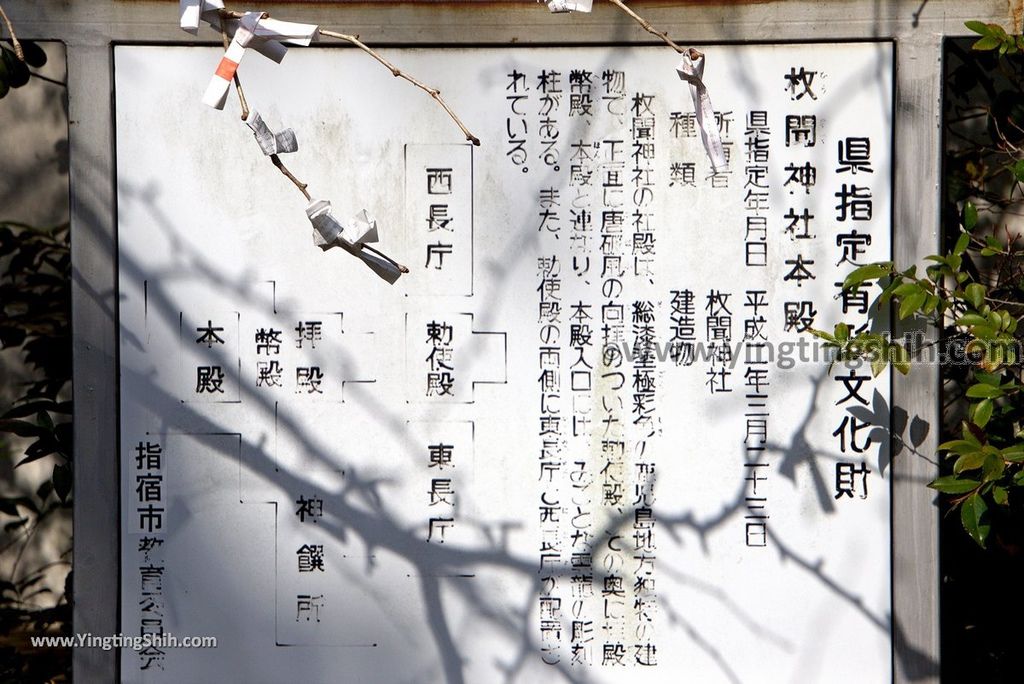 県指定有形文化財
枚聞神社本殿
県指定年月日 平成 年三月二十三日
所有者 枚聞神社
種類 建造物
枚聞神社の社殿は、総漆塗極彩色の鹿児島地方独特の建
物で、正面に唐破風の向拝のついた勅使殿、その奥に拝殿
幣殿、本殿と連なり、本殿入口には、みごとな雲龍の彫刻
柱がある。また、勅使殿の両側に東長庁と西長庁が配置さ
れている。
西長庁
勅使殿
東長庁
拝殿
幣殿
本殿
神饌所
指宿市教育委員会
www.YingtingShih.com
www.yingtingShih.com